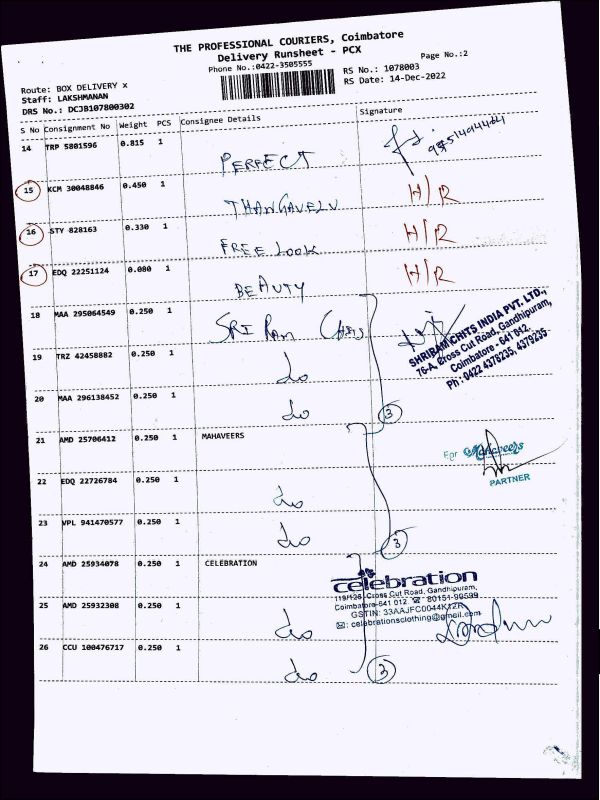 THE PROFESSIONAL COURIERS, Coimbatore
Delivery Runsheet - PCX
Phone No.:0422-3505555
Page No.:2
Route: BOX DELIVERY x
RS No.: 1078003
Staff: LAKSHMANAN
RS Date: 14-Dec-2022
DRS No.: DCJB107800302
S No Consignment No Weight PCS Consignee Details Signature
14 TRP 5801596 0.815 1 PERFECT
15 KCM 30048846 0.450 1 THANGAVELU H/R
16 STY 828163 0.330 1 FREE LOOK H/R
17 EDQ 22251124 0.080 1 BEAUTY H/R
18 MAA 295064549 0.250 1 SRI RAM
SHRIRAM CHITS INDIA PVT. LTD.,
76-A, Cross Cut Road, Gandhipuram,
Coimbatore - 641 012.
Ph : 0422 4376235, 4379235
19 TRZ 42458882 0.250 1 do
20 MAA 296138452 0.250 1 do 3
21 AMD 25706412 0.250 1 MAHAVEERS
For Mahaveers
PARTNER
22 EDQ 22726784 0.250 1 do
23 VPL 941470577 0.250 1 do 3
24 AMD 25934078 0.250 1 CELEBRATION
celebration
119/126, Cross Cut Road, Gandhipuram,
Coimbatore-641 012 ☎ 80151-99599
GSTIN: 33AAJFC0044K1ZR
✉: celebrationsclothing@gmail.com
25 AMD 25932308 0.250 1 do
26 CCU 100476717 0.250 1 do 3